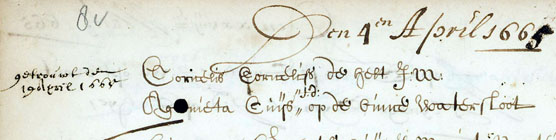 8v
Den 4en April 1665
getrouwt den
19 April 1665
Cornelis Cornelisse de helt J.M.
J.D.
Suijs op de buure watersloot